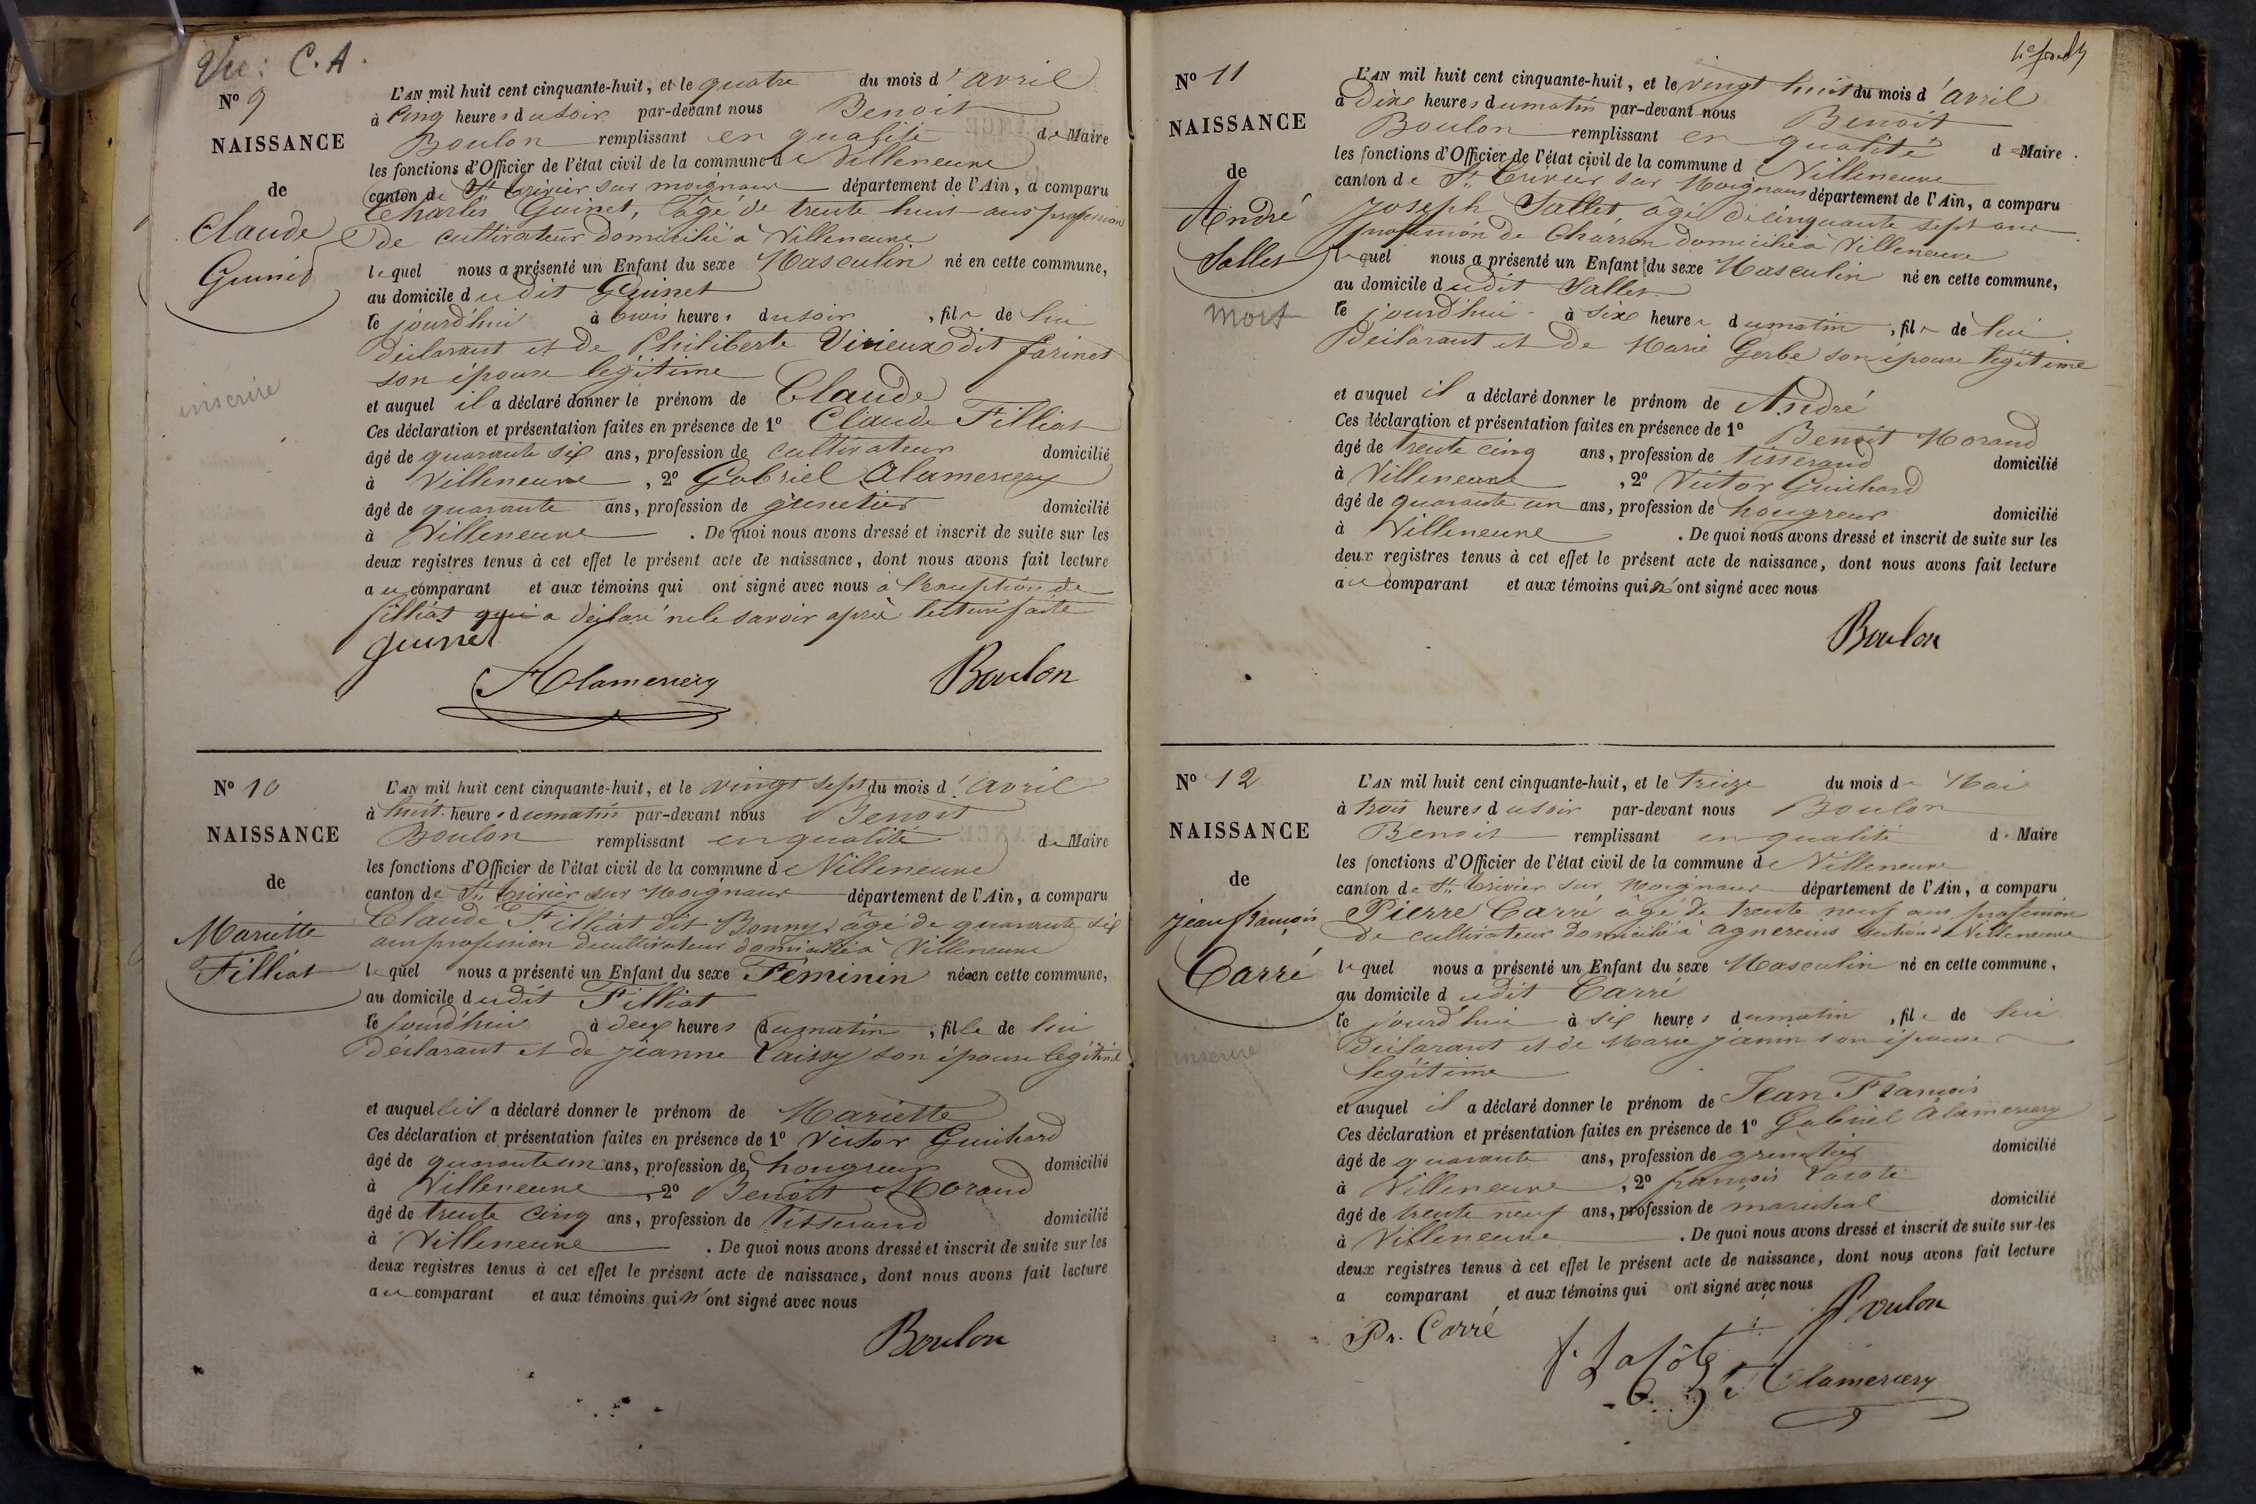 Vu: C. A.
N° 9
NAISSANCE
de
Claude
Guinet
inscrire
L'AN mil huit cent cinquante-huit, et le quatre du mois d'avril
à cinq heures du soir par-devant nous Benoit
Boulon remplissant en qualité de Maire
les fonctions d'Officier de l'état civil de la commune de Villeneuve
canton de St Trivier sur moignans département de l'Ain, a comparu
Charles Guinet, âgé de trente huit ans profession
de cultivateur domicilié à Villeneuve
lequel nous a présenté un Enfant du sexe Masculin né en cette commune,
au domicile dudit Guinet
le jourd'hui à trois heures du soir, fils de lui
déclarant et de Philiberte Virieux dit farinet
son épouse légitime
et auquel il a déclaré donner le prénom de Claude
Ces déclaration et présentation faites en présence de 1° Claude Filliat
âgé de quarante six ans, profession de cultivateur domicilié
à Villeneuve, 2° Gabriel Alamercery
âgé de quarante ans, profession de grenetier domicilié
à Villeneuve. De quoi nous avons dressé et inscrit de suite sur les
deux registres tenus à cet effet le présent acte de naissance, dont nous avons fait lecture
au comparant et aux témoins qui ont signé avec nous à l'exception de
filliat qui a déclaré ne le savoir après lecture faite
Guinet
Alamercery Boulon
N° 10
NAISSANCE
de
Mariette
Filliat
L'AN mil huit cent cinquante-huit, et le vingt sept du mois d'avril
à huit heures du matin par-devant nous Benoit
Boulon remplissant en qualité de Maire
les fonctions d'Officier de l'état civil de la commune de Villeneuve
canton de St Trivier sur Moignans département de l'Ain, a comparu
Claude Filliat dit Bonny âgé de quarante six
ans profession de cultivateur domicilié à Villeneuve
lequel nous a présenté un Enfant du sexe Féminin née en cette commune,
au domicile dudit Filliat
le jourd'hui à deux heures du matin, fille de lui
déclarant et de Jeanne Laissy son épouse légitime
et auquel il a déclaré donner le prénom de Mariette
Ces déclaration et présentation faites en présence de 1° Victor Guichard
âgé de quarante un ans, profession de hongreur domicilié
à Villeneuve, 2° Benoit Morand
âgé de trente cinq ans, profession de tisserand domicilié
à Villeneuve. De quoi nous avons dressé et inscrit de suite sur les
deux registres tenus à cet effet le présent acte de naissance, dont nous avons fait lecture
au comparant et aux témoins qui n'ont signé avec nous
Boulon
N° 11
NAISSANCE
de
André
Sallet
mort
L'AN mil huit cent cinquante-huit, et le vingt huit du mois d'avril
à dix heures du matin par-devant nous Benoit
Boulon remplissant en qualité d Maire
les fonctions d'Officier de l'état civil de la commune d Villeneuve
canton de St Trivier sur Moignans département de l'Ain, a comparu
Joseph Sallet, âgé de cinquante sept ans
profession de Charron domicilié à Villeneuve
lequel nous a présenté un Enfant du sexe Masculin né en cette commune,
au domicile dudit Sallet
le jourd'hui à six heures du matin, fils de lui
déclarant et de Marie Gerbe son épouse légitime
et auquel il a déclaré donner le prénom de André
Ces déclaration et présentation faites en présence de 1° Benoit Morand
âgé de trente cinq ans, profession de tisserand domicilié
à Villeneuve, 2° Victor Guichard
âgé de quarante un ans, profession de hongreur domicilié
à Villeneuve. De quoi nous avons dressé et inscrit de suite sur les
deux registres tenus à cet effet le présent acte de naissance, dont nous avons fait lecture
au comparant et aux témoins qui n'ont signé avec nous
Boulon
N° 12
NAISSANCE
de
Jean François
Carré
inscrire
L'AN mil huit cent cinquante-huit, et le treize du mois de Mai
à trois heures du soir par-devant nous Boulon
Benoit remplissant en qualité de Maire
les fonctions d'Officier de l'état civil de la commune de Villeneuve
canton de St Trivier sur Moignans département de l'Ain, a comparu
Pierre Carré âgé de trente neuf ans profession
de cultivateur domicilié à agnereins section de Villeneuve
lequel nous a présenté un Enfant du sexe Masculin né en cette commune,
au domicile dudit Carré
le jourd'hui à six heures du matin, fils de lui
déclarant et de Marie Janin son épouse
légitime
et auquel il a déclaré donner le prénom de Jean François
Ces déclaration et présentation faites en présence de 1° Gabriel Alamercery
âgé de quarante ans, profession de grenetier domicilié
à Villeneuve, 2° françois Lacote
âgé de trente neuf ans, profession de maréchal domicilié
à Villeneuve. De quoi nous avons dressé et inscrit de suite sur les
deux registres tenus à cet effet le présent acte de naissance, dont nous avons fait lecture
a comparant et aux témoins qui ont signé avec nous
Boulon
Pr. Carré
f. Lacôte Alamercery